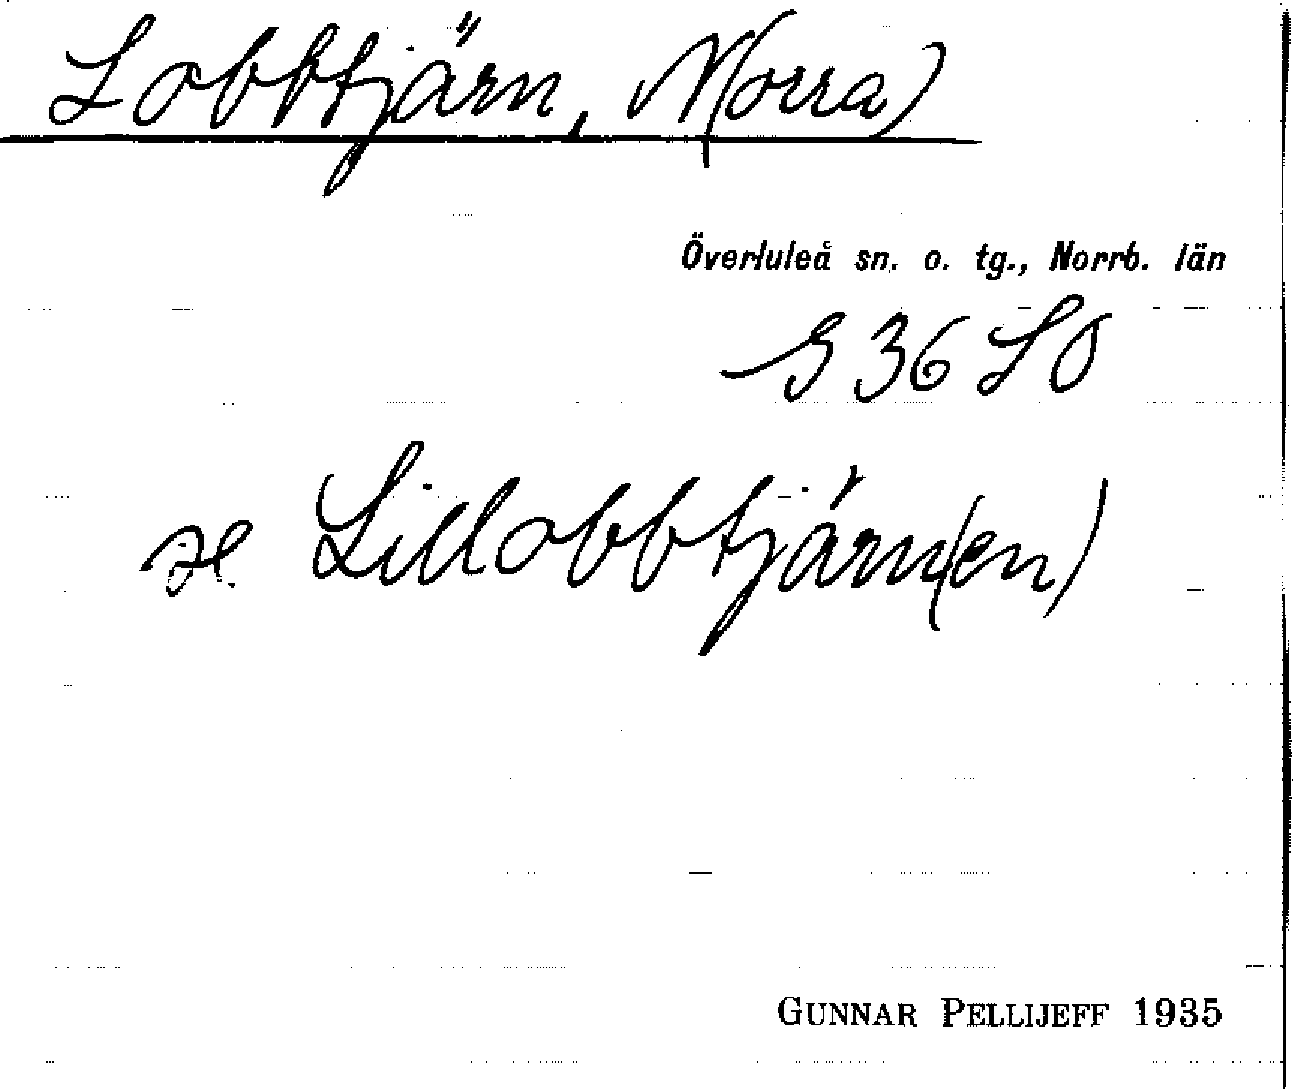 Lobbtjärn, N(orra)
Överluleå sn. o. tg., Norrb. län
S 36 SO
se Lillobbtjärn(en)
GUNNAR PELLIJEFF 1935